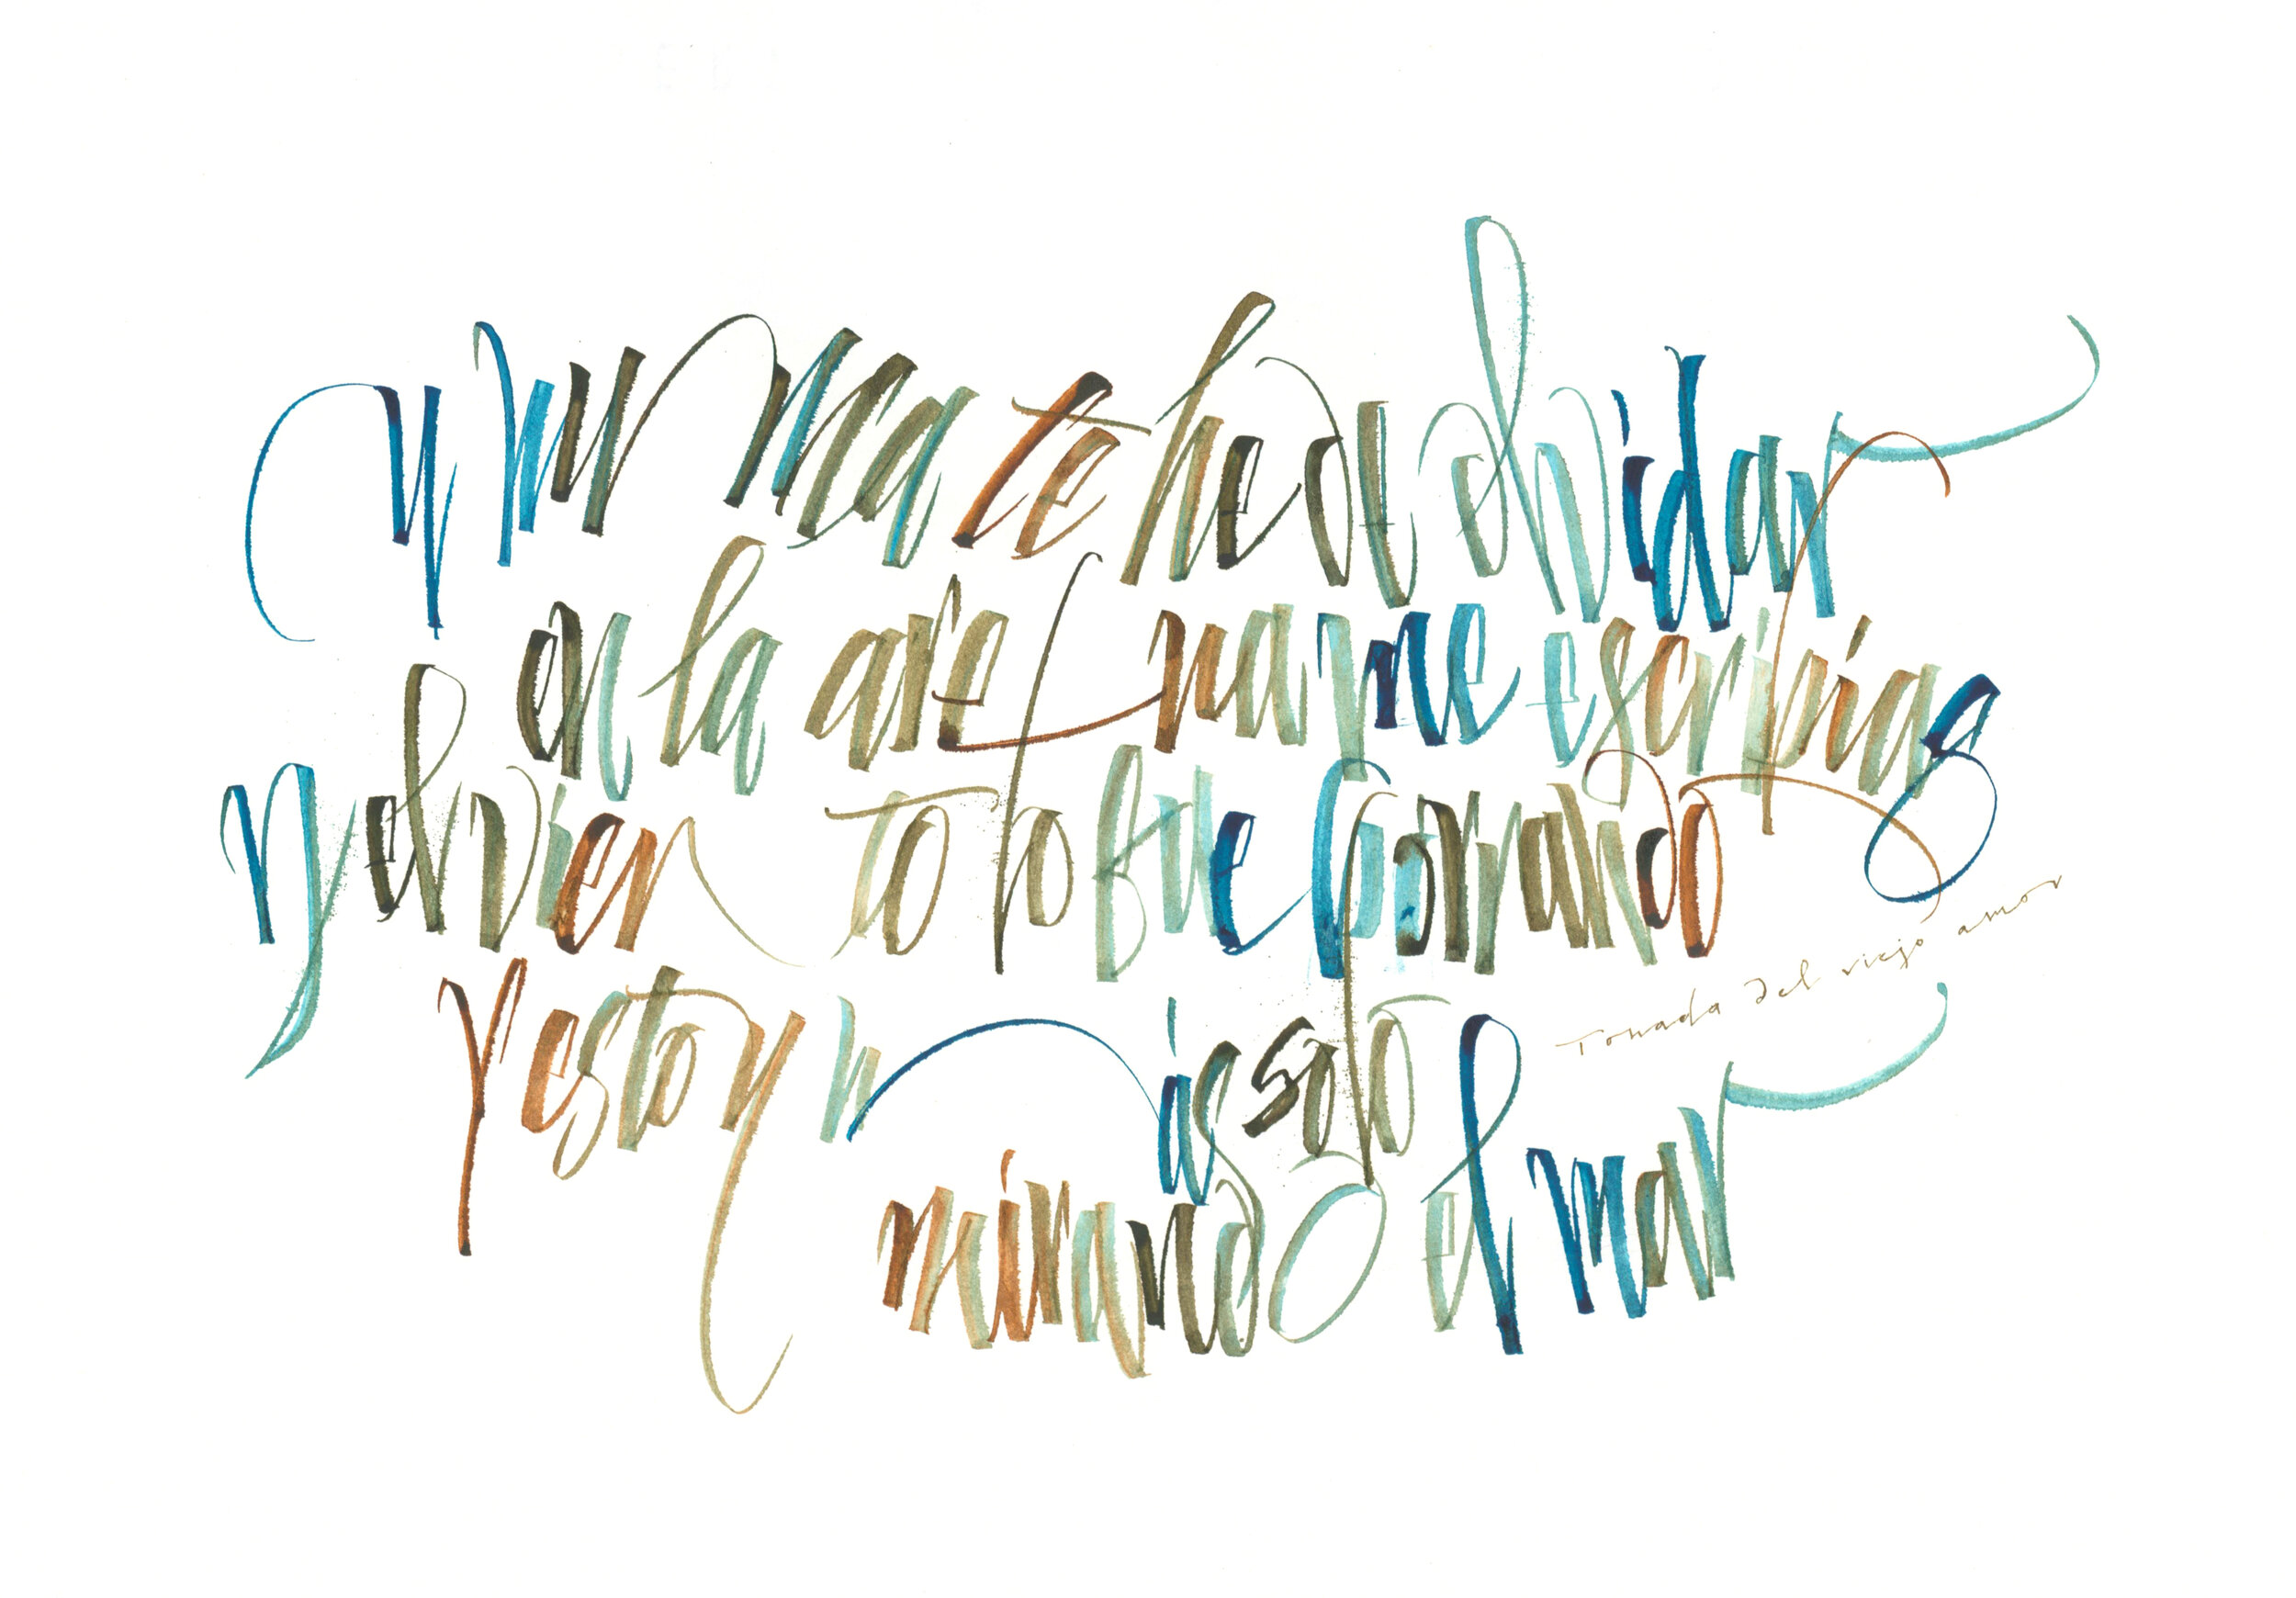 y nunca te he de olvidar
en la arena me escribias
y el viento lo fue borrando
y estoy mas solo
mirando el mar
Tonada del viejo amor